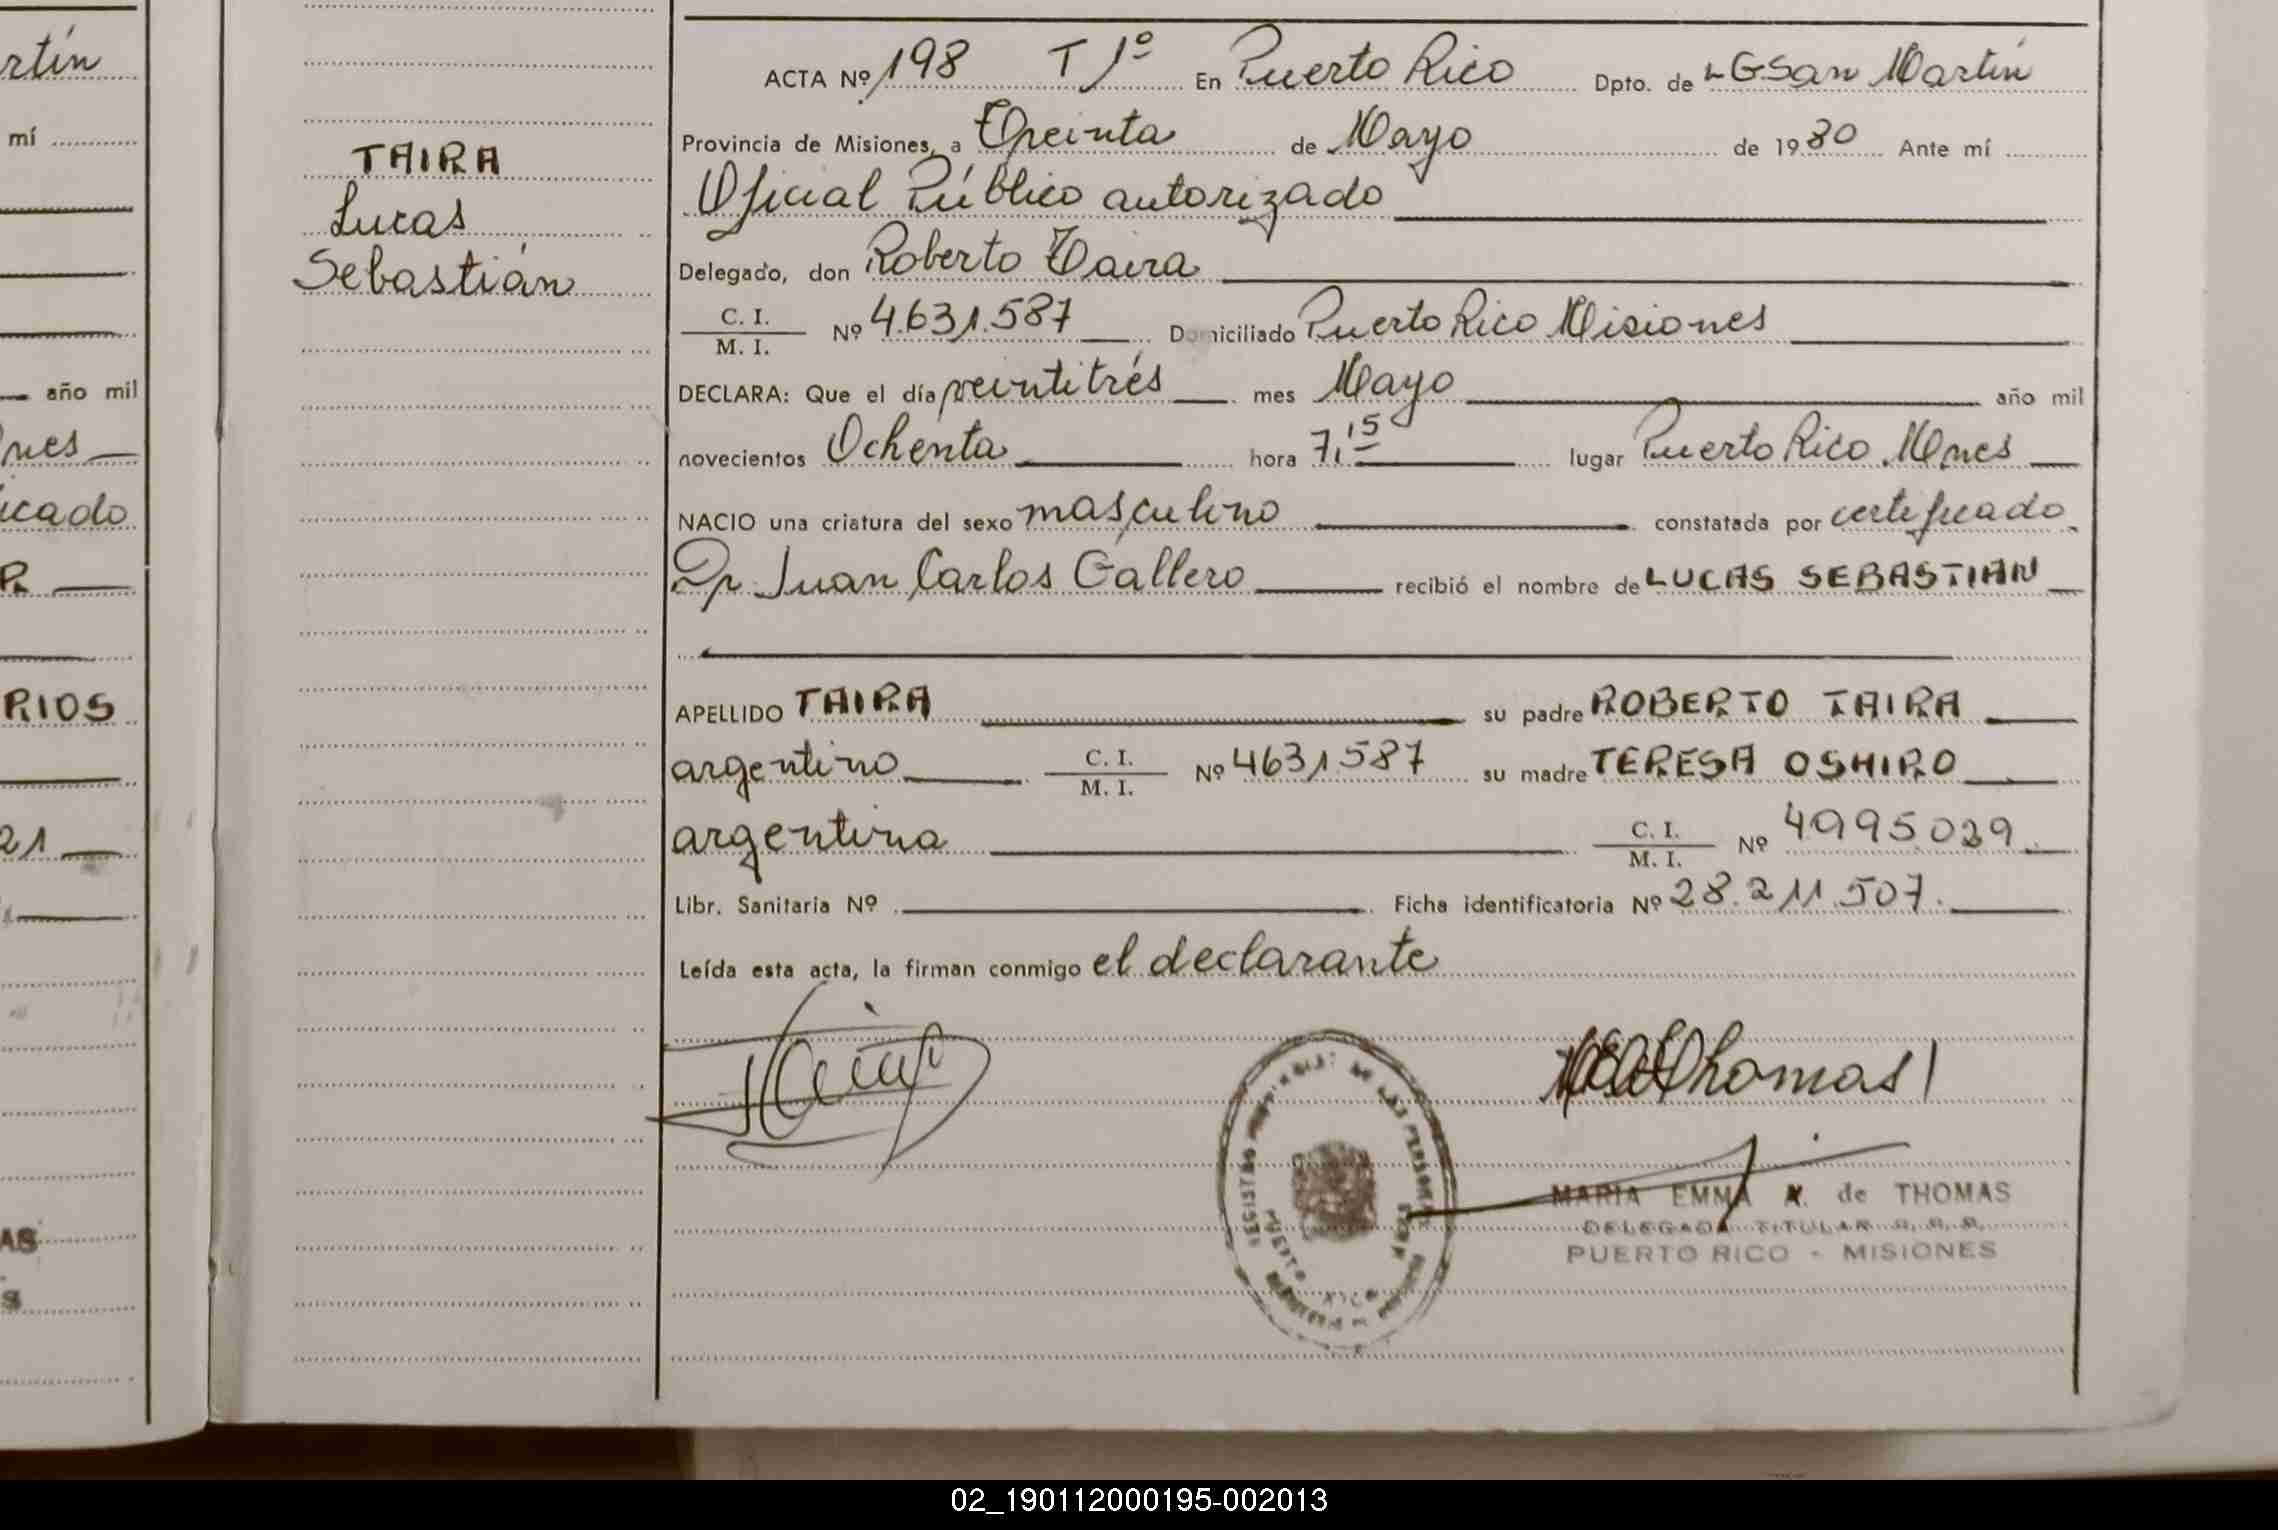 rtín
mí
año mil
nes
icado
R
RIOS
21
AS
s
TAIRA
Lucas
Sebastián
ACTA Nº 198 T 1º En Puerto Rico Dpto. de LGSan Martín
Provincia de Misiones, a Treinta de Mayo de 1980 Ante mí
Oficial Público autorizado
Delegado, don Roberto Taira
C. I.
M. I. Nº 4.631.587 Domiciliado Puerto Rico Misiones
DECLARA: Que el día veintitrés mes Mayo año mil
novecientos Ochenta hora 7,15 lugar Puerto Rico Mnes
NACIO una criatura del sexo masculino constatada por certificado
Dr Juan Carlos Gallero recibió el nombre de LUCAS SEBASTIAN
APELLIDO TAIRA su padre ROBERTO TAIRA
argentino C. I.
M. I. Nº 4631587 su madre TERESA OSHIRO
argentina C. I.
M. I. Nº 4995029
Libr. Sanitaria Nº Ficha identificatoria Nº 28.211.507.
Leída esta acta, la firman conmigo el declarante
Thomas
MARIA EMMA K. de THOMAS
DELEGADA TITULAR
PUERTO RICO - MISIONES
REGISTRO DE LAS PERSONAS
PUERTO RICO
02_190112000195-002013